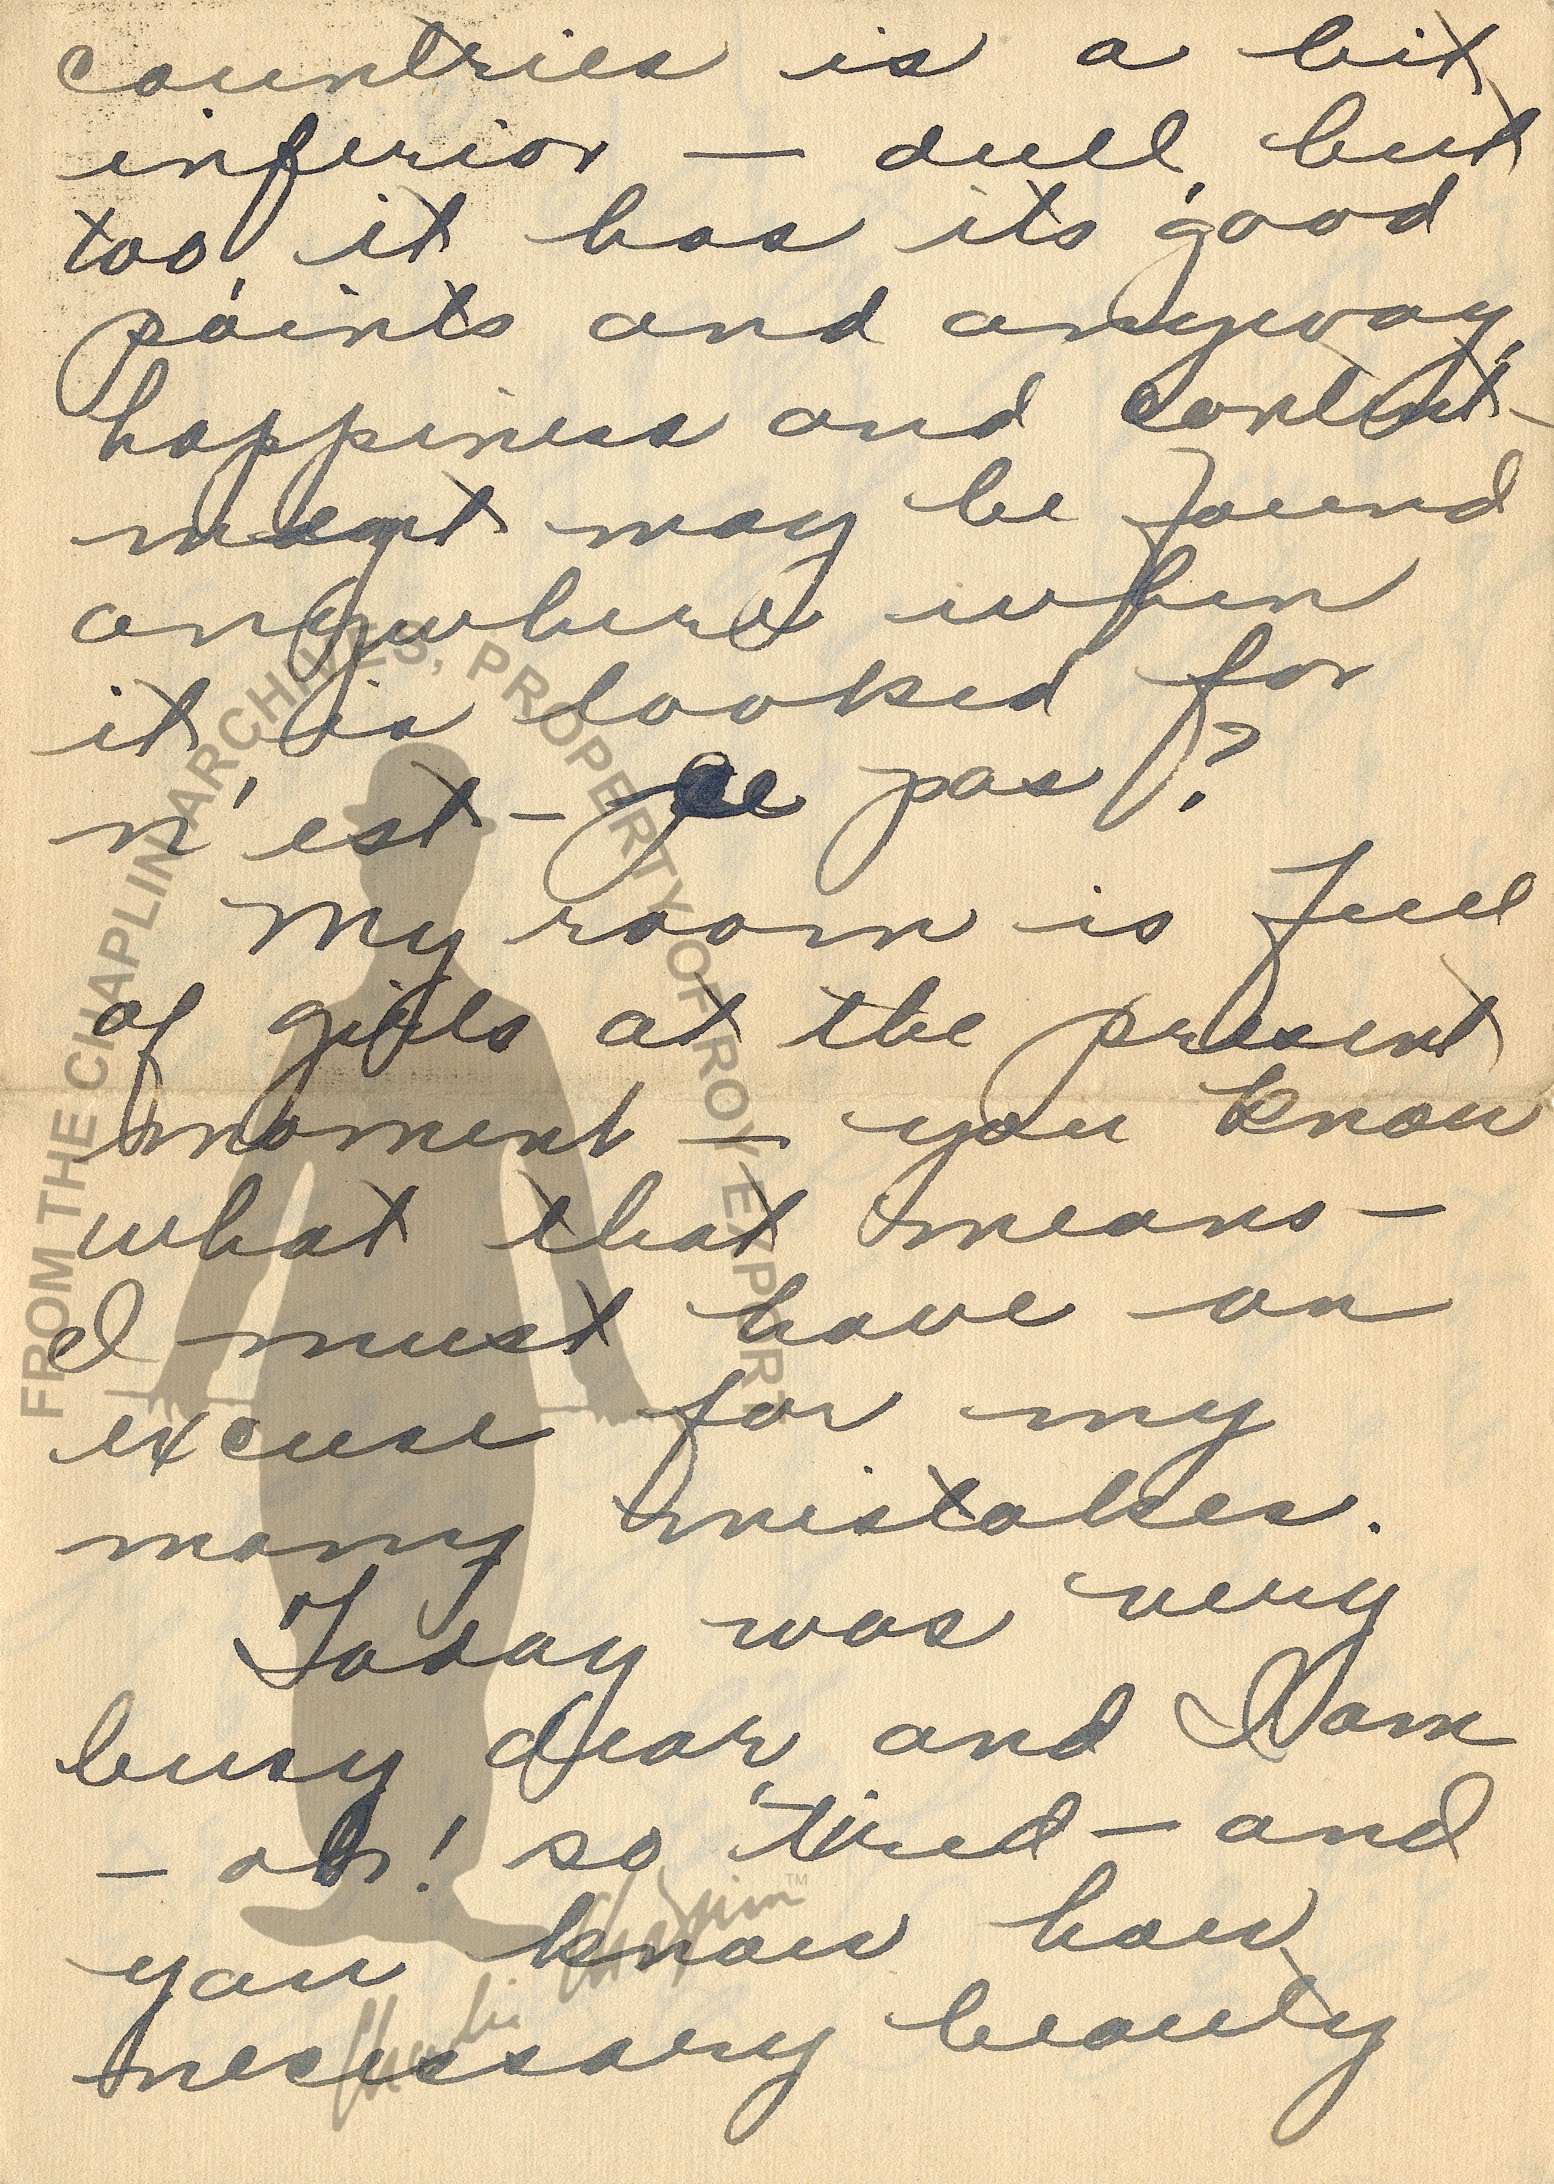 countries is a bit
inferior — dull, but
too, it has its good
points and anyway,
happiness and content-
ment may be found
anywhere when
it is looked for
n'est-ce pas?
My room is full
of girls at the present
moment — you know
what that means —
I must have an
excuse for my
many mistakes.
Today was very
busy dear, and I am
— oh! so, tired — and
you know how
necessary beauty
FROM THE CHAPLIN ARCHIVES, PROPERTY OF ROY EXPORT
Charlie Chaplin™